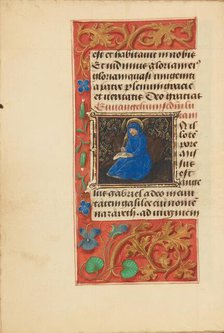 est et habitavit in nobis
Et vidimus gloriam ei
gloriam quasi unigeniti
a patre plenum gratie
et veritatis Deo gracias
In illo
tpore
mis
sus est
ange
lus gabriel a deo in civi
tatem galilee cui nomen
nazareth ad virginem